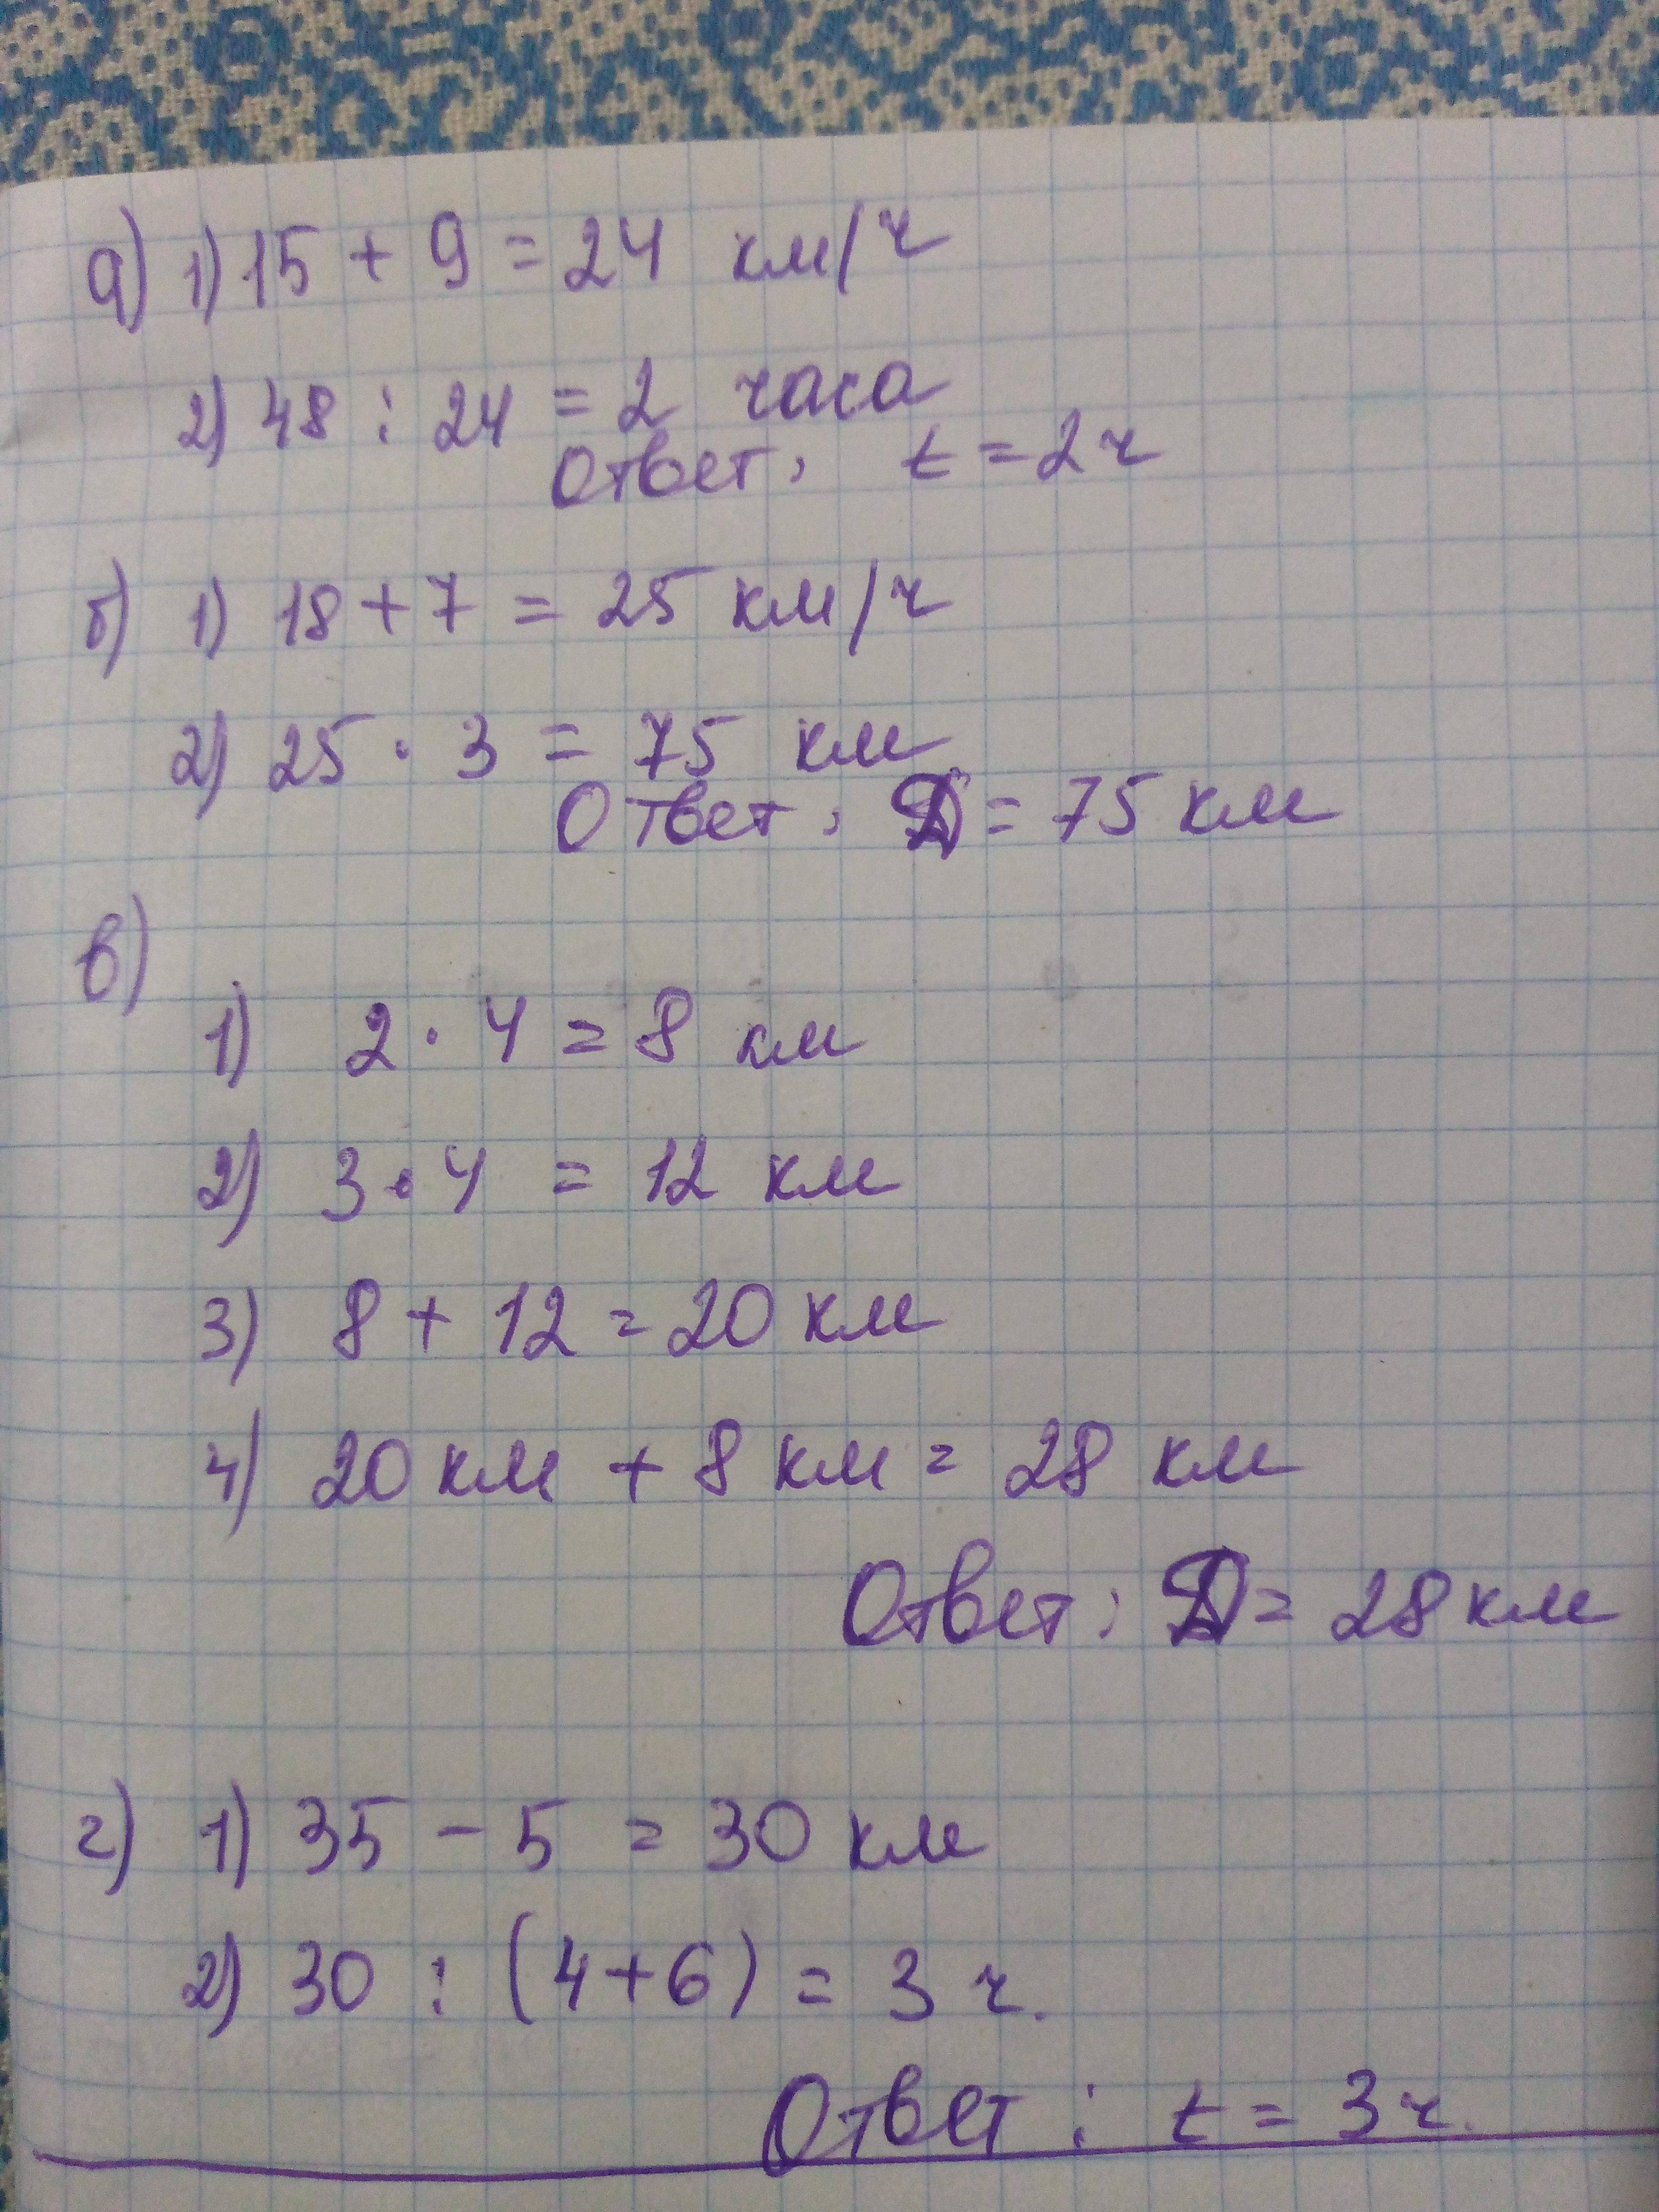 а) 1) 15 + 9 = 24 км/ч
2) 48 : 24 = 2 часа
Ответ: t = 2 ч
б) 1) 18 + 7 = 25 км/ч
2) 25 · 3 = 75 км
Ответ: D = 75 км
в)
1) 2 · 4 = 8 км
2) 3 · 4 = 12 км
3) 8 + 12 = 20 км
4) 20 км + 8 км = 28 км
Ответ: D = 28 км
г) 1) 35 - 5 = 30 км
2) 30 : (4+6) = 3 ч.
Ответ: t = 3 ч.